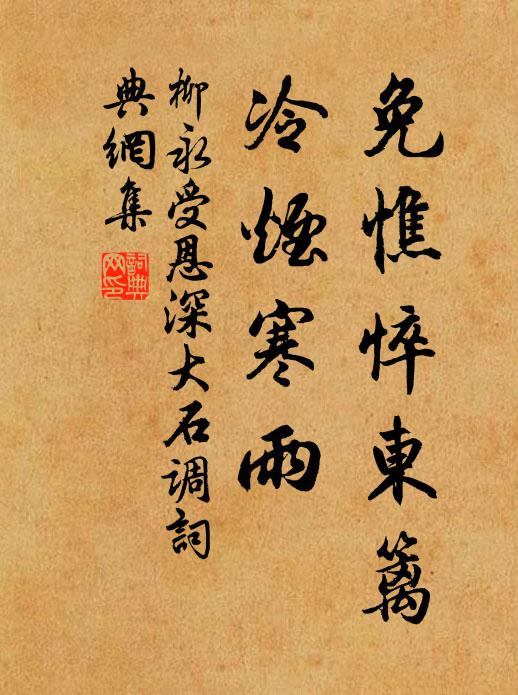 免憔悴東籬
冷煙寒雨
柳永受恩深大石调詞
典網集
詞典
网印